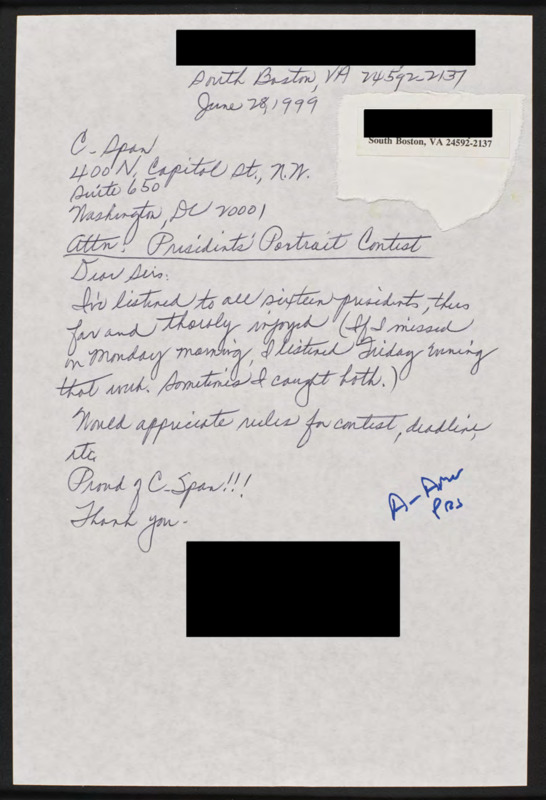 South Boston, VA 24592-2137
June 28, 1999
South Boston, VA 24592-2137
C-Span
400 N. Capitol St., N.W.
Suite 650
Washington, DC 20001
Attn: Presidents' Portrait Contest
Dear Sirs:
I've listened to all sixteen presidents, thus
far and thoroly enjoyed (If I missed
on Monday morning, I listened Friday evening
that week. Sometimes I caught both.)
Would appreciate rules for contest, deadline,
etc.
Proud of C-Span!!!
Thank you-
A-Amer
Pres